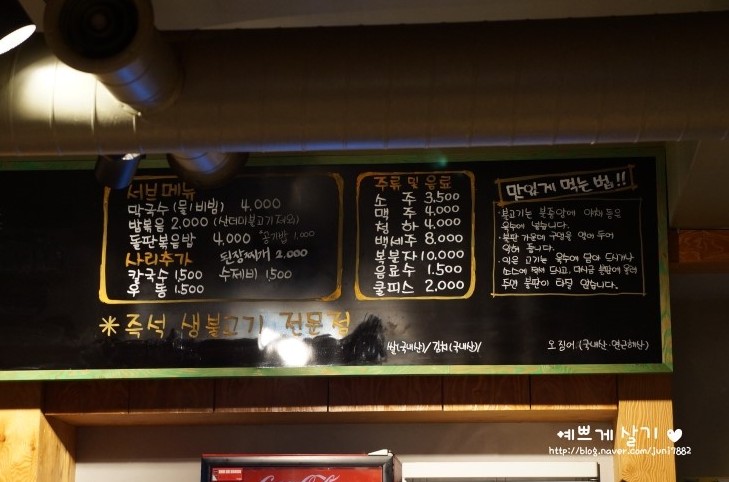 서브메뉴
막국수 (물/비빔) 4,000
밥볶음 2,000
돌판볶음밥 4,000 *공기밥 1,000
사리추가 된장찌개 2,000
칼국수 1,500 수제비 1,500
우동 1,500
주류 및 음료
소주 3,500
맥주 4,000
청하 4,000
백세주 8,000
복분자 10,000
음료수 1,500
쿨피스 2,000
맛있게 먹는 법!!
·불고기는 불판위에 야채 등은
육수에 넣습니다.
·불판 가운데 구멍을 열어 두어
·익은 고기는 육수에 담아 드시거나
소스에 찍어 드시고,
두면 불판이 타질 않습니다.
*즉석 생불고기 전문점
쌀(국내산)/김치(국내산)/
오징어(국내산·연근해산)
예쁘게 살기 ♥
http://blog.naver.com/juni7882
Coca-Cola